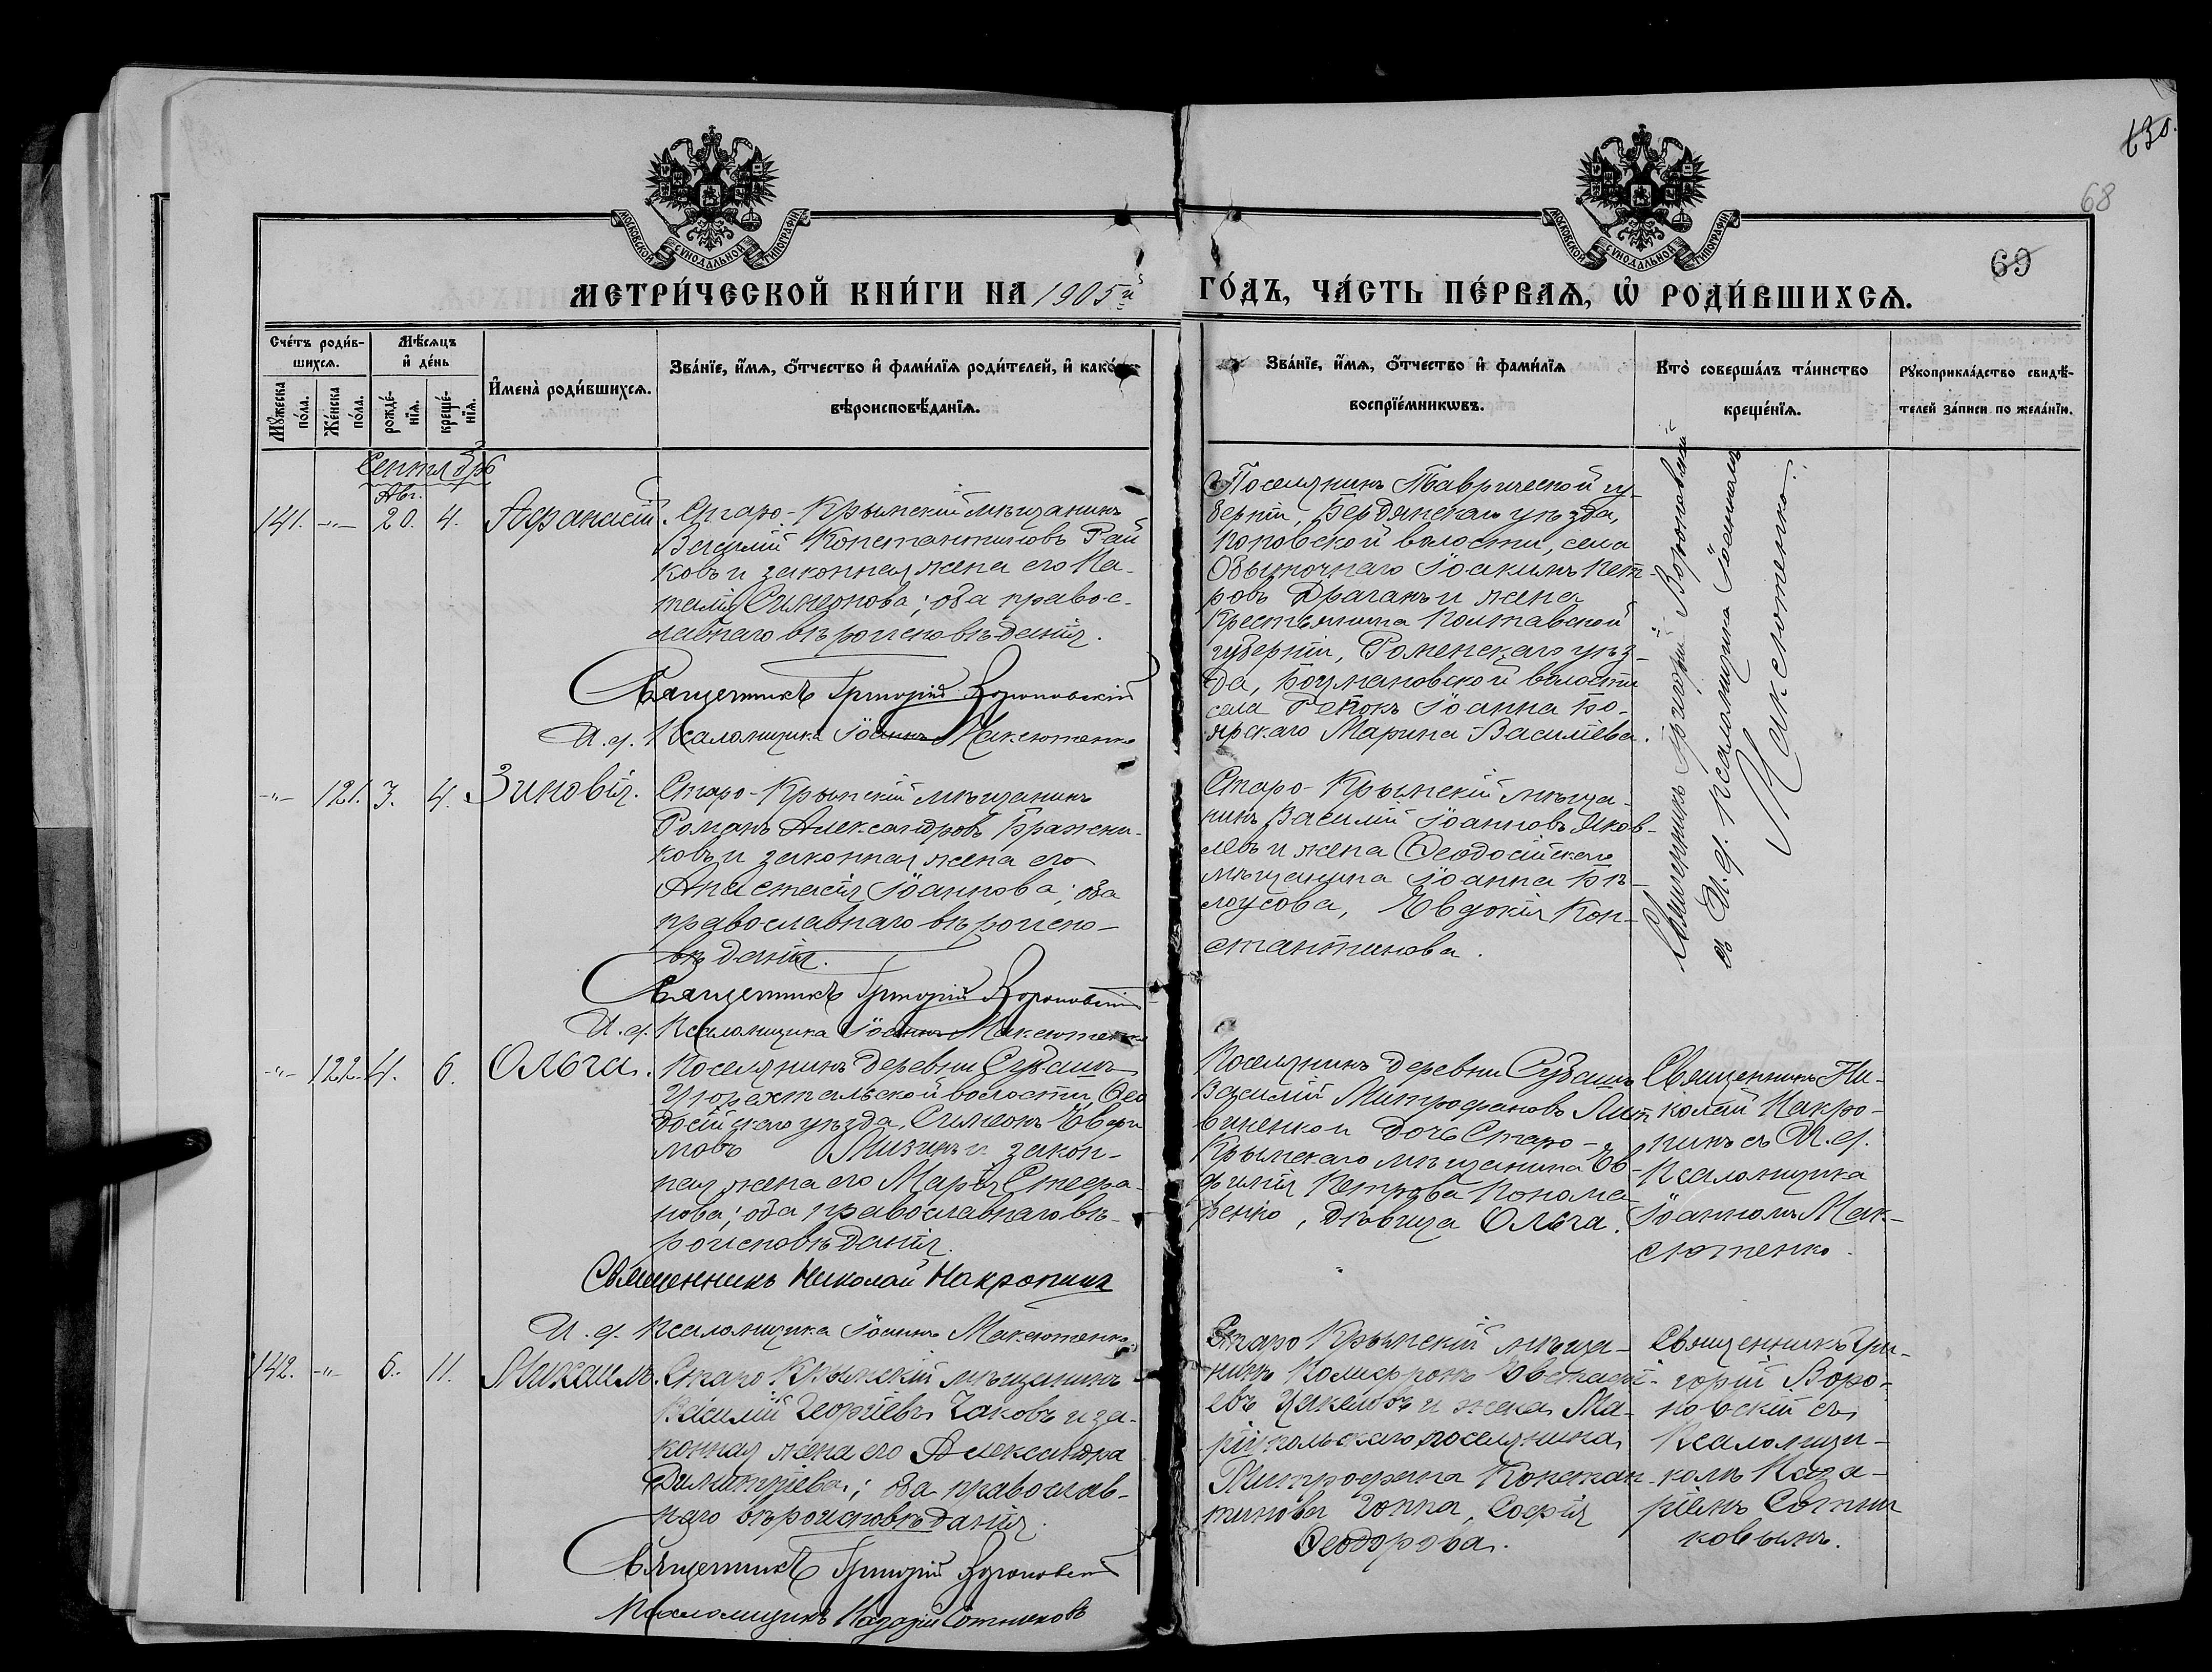 130.
68
69
МОСКОВСКОЙ СѴНОДАЛЬНОЙ ТИПОГРАФІИ
МОСКОВСКОЙ СѴНОДАЛЬНОЙ ТИПОГРАФІИ
МЕТРИ́ЧЕСКОЙ КНИ́ГИ НА 1905й
ГО́ДЪ, ЧА́СТЬ ПЕ́РВАѦ, Ѡ҆ РОДИ́ВШИХСѦ.
Сче́тъ роди́в-
шихсѧ.
Мꙋ́жеска
по́ла.
Же́нска
по́ла.
Мѣ́сѧцъ
и҆ де́нь
рожде́-
нїѧ.
креще́-
нїѧ.
И҆мена̀ роди́вшихсѧ.
Зва́нїе, и҆́мѧ, ѻ҆́тчество и҆ фами́лїѧ роди́телей, и҆ како́гѡ
вѣроисповѣ́данїѧ.
Зва́нїе, и҆́мѧ, ѻ҆́тчество и҆ фами́лїѧ
воспрїе́мникѡвъ.
Кто̀ соверша́лъ та́инство
креще́нїѧ.
Рꙋкоприкла́дство свидѣ́-
телей за́писи по жела́нїю.
Сентябрь
Авг.
141. -"- 20. 4. Афанасій.
Старо-Крымскій мѣщанинъ
Василій Константиновъ Рай
ковъ и законная жена его На-
талія Симеонова; оба правос-
лавнаго вѣроисповѣданія.
Священникъ Григорій Вороновскій
И. д. Псаломщика Іоаннъ Максютенко
Поселянинъ Таврической гу-
берніи, Бердянскаго уѣзда,
Поповской волости, села
Обыточнаго Іоакимъ Пет-
ровъ Драганъ и жена
Крестьянина Полтавской
губерніи, Роменскаго уѣз-
да, волости
села Іоанна Бо-
ярскаго Марина Васильева.
Священникъ Григорій Вороновскій
съ И. д. Псаломщика Іоанномъ
Максютенко.
-"- 121. 3. 4. Зиновія.
Старо-Крымскій мѣщанинъ
Романъ Александровъ Бражни-
ковъ и законная жена его
Анастасія Іоаннова; оба
православнаго вѣроиспо-
вѣданія.
Священникъ Григорій Вороновскій
И. д. Псаломщика Іоаннъ Максютенко
Старо-Крымскій мѣща-
нинъ Василій Іоанновъ Яков-
левъ и жена Ѳеодосійскаго
мѣщанина Іоанна Бѣ-
лоусова, Евдокія Кон-
стантинова.
-"- 122. 4. 6. Ольга.
Поселянинъ деревни Субашъ
Цюрихтальской волости, Ѳео
досійскаго уѣзда, Симеонъ Евфи
мовъ Мизинъ и закон-
ная жена его Марія Стефа-
нова; оба православнаго вѣ-
роисповѣданія.
Священникъ Николай Накропинъ
И. д. Псаломщика Іоаннъ Максютенко
Поселянинъ деревни Субашъ
Василій Митрофановъ Лит
виненко и дочь Старо-
Крымскаго мѣщанина Ев-
фимія Петрова Понома-
ренко, дѣвица Ольга.
Священникъ Ни-
колай Накро-
пинъ съ И. д.
Псаломщика
Іоанномъ Мак-
сютенко.
142. -"- 6. 11. Михаилъ.
Старо Крымскій мѣщанинъ
Василій Георгіевъ Чаковъ и за-
конная жена его Александра
Димитріева; оба православ-
наго вѣроисповѣданія.
Священникъ Григорій Вороновскій
Псаломщикъ Назарій Сотниковъ
Старо Крымскій мѣща-
нинъ Полифронъ Евстафі-
евъ и жена Ма-
ріупольскаго поселянина
Митрофана Констан-
тинова Чонпа, Софія
Ѳеодорова.
Священникъ Гри-
горій Воро-
новскій съ
Псаломщи-
комъ Наза-
ріемъ Сотни
ковымъ.